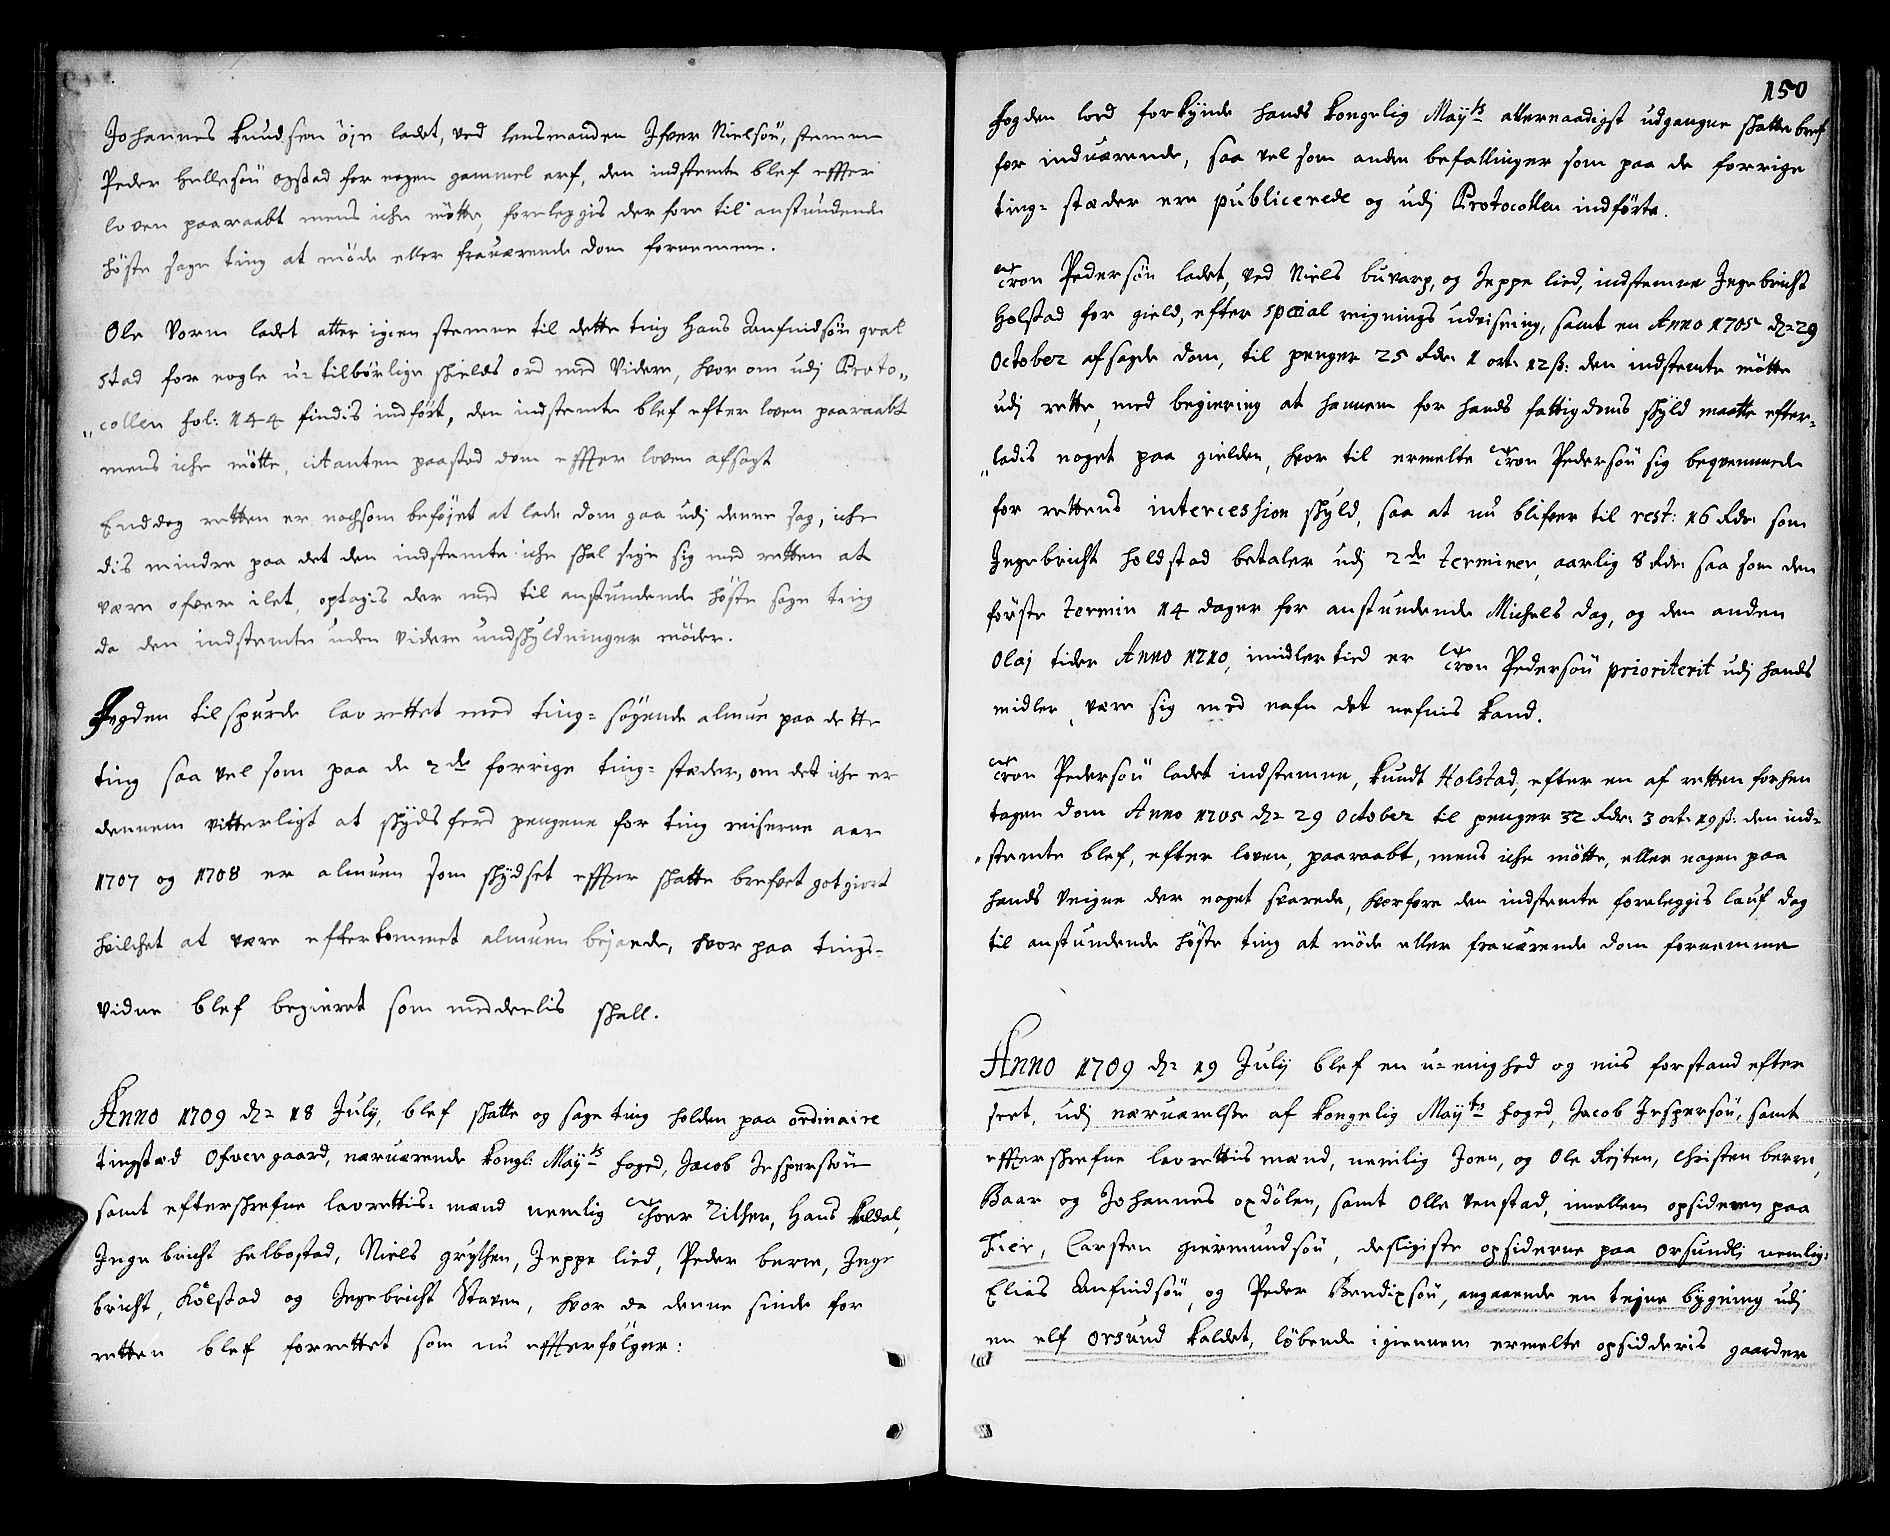 Johannes Knudsen öje ladet, ved lensmanden Ifver Nielsøn, stemne
Peder Hellesøn opstad for nogen gammel arf, den indstemte blef effter
loven paaraabt mens iche mötte, foreleggis der fore til anstundende
höste sage ting at möde eller frauærende dom fornemme.
Ole Vorm ladet atter igien stemne til dette ting Hans Anfindsøn qval
stad for nogle u=tilbörlige skields ord med videre, hvor om udj Proto„
„collen fol: 144 findis indført, den indstemte blef efter loven paaraabt
mens iche mötte, citanten paastod dom effter loven afsagt
Enddog retten er nochsom beföjet at lade dom gaa udj denne sag, iche
dis mindre paa det den indstemte iche skal sige sig med retten at
være ofver ilet, optagis der med til anstundende höste sage ting
da den indstemte uden videre undskyldninger möder.
Fogden tilspurde lavrettet med ting=søgende almue paa dette
ting saa vel som paa de 2de forrige ting=stæder, om det iche er
dennem vitterligt at skydsferd pengene for ting reiserne aar
1707 og 1708 er almuen som skydset effter skatte brefvet got giort
hvilchet at være efterkommet almuen bejaede, hvor paa tings=
vidne blef begieret som meddeelis skall.
Anno 1709 d= 18 July, blef skatte og sage ting holden paa ordinaire
tingstæd Ofvergaard, næruærende Kongl: Mayts foged, Jacob Jesperssøn
samt efterskrefne lavrettis=mænd nemlig Thoer Zilsen, Hans Kaldal,
Inge bricht helbostad, Niels grythen, Jeppe lied, Peder berre, Inge
bricht, Kölstad og Ingebricht Staven, hvor da denne sinde for
retten blef forrettet som nu effterfölger:
150
fogden lod forkynde hands Kongelig Mayts allernaadigst udgangne skatte bref
for induærende, saa vel som andre befallinger som paa de forrige
ting=stæder ere publicerede og udj Protocollen indførte.
Tron Pedersøn ladet, ved Niels buvarp, og Jeppe lied, indstemne Ingebricht
Holstad for gield, efter special reignings udvisning, samt en Anno 1705 d= 29
October afsagde dom, til penger 25 Rdr 1 ort 12 ß: den indstemte mötte
udj rette, med begiering at hannem for hands fattigdoms skyld maatte efter=
„ladis noget paa gielden, hvor til ermelte Tron Pedersøn sig beqvemmede
for rettens intercession skyld, saa at nu blifver til rest: 16 Rdr som
Ingebricht holdstad betaler udj 2de terminer, aarlig 8 Rdr saa som den
förste termin 14 dager for anstundende Michels dag, og den anden
Olaj tider Anno 1710, imidlertid er Tron Pedersøn prioriterit udj hands
midler, være sig med nafn det nefnis kand.
Tron Pedersøn ladet indstemne, Knudt Holstad, efter en af retten forhen
tagen dom Anno 1705 d= 29 October til penger 32 Rdr: 3 ort: 19 ß: den ind=
„stemte blef, efter loven, paaraabt, mens iche mötte, eller nogen paa
hands veigne der noget svarede, hvorfore den indstemte foreleggis lauf dag
til anstundende höste ting at möde eller frauærende dom fornemme
Anno 1709 d= 19 July blef en u=enighed og mis forstand efter
seet, udj næruærelse af Kongelig Mayts foged, Jacob Jespersøn, samt
effterskrefne lavrettis mænd, nemlig Joen, og Ole Rejten, Christen berre,
Baar og Johannes opdölen, samt Olle venstad, imellem opsideren paa
Fieir, Carsten giermundsøn, desligeste opsiderne paa Orsundli nemlig:
Elias Anfindsøn, og Peder Bendixsøn, angaaende en tejne bygning udj
en elf Orsund kaldet, löbende igiennem ermelte opsidderis gaarder